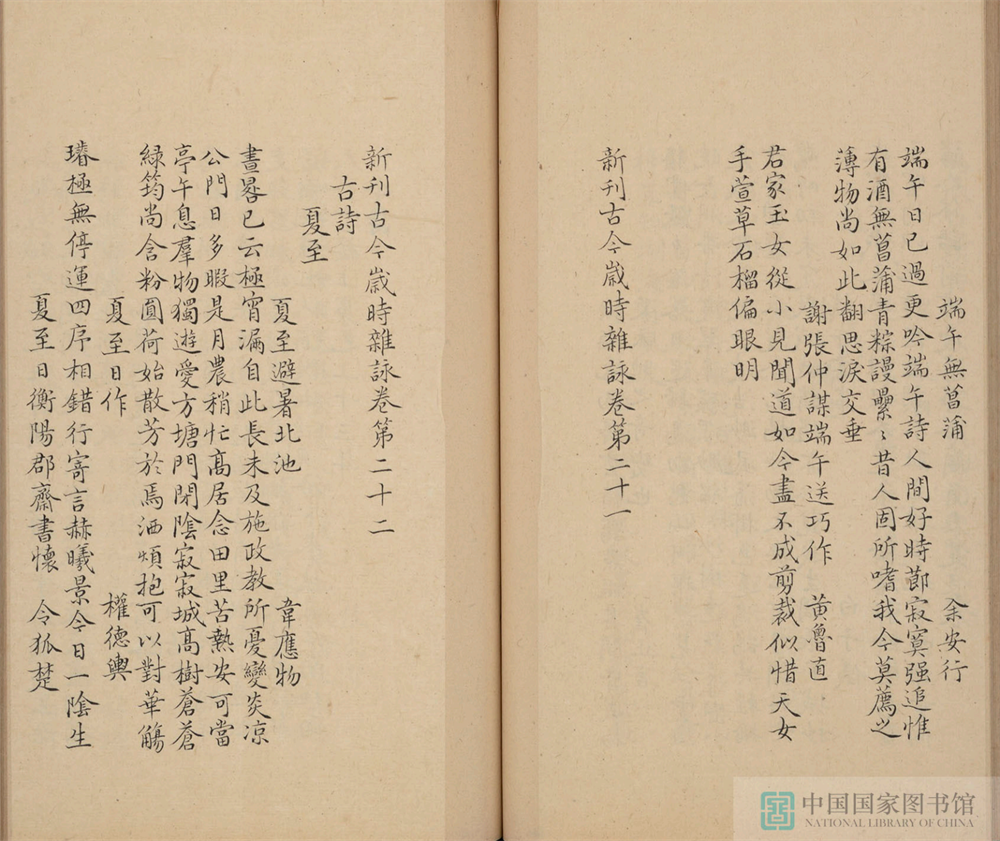 端午無菖蒲 余安行
端午日已過更吟端午詩人間好時節寂寞强追惟
有酒無菖蒲青粽謾纍〻昔人固所嗜我今莫薦之
薄物尚如此翻思淚交垂
謝張仲謀端午送巧作 黃魯直
君家玉女從小見聞道如今盡不成剪裁似惜天女
手萱草石榴偏眼明
新刊古今歲時雜詠卷第二十一
新刊古今歲時雜詠卷第二十二
古詩
夏至
夏至避暑北池 韋應物
晝晷已云極宵漏自此長未及施政教所憂變炎凉
公門日多暇是月農稍忙高居念田里苦熱安可當
亭午息羣物獨遊愛方塘門閉陰寂寂城高樹蒼蒼
綠筠尚含粉圓荷始散芳於焉洒煩抱可以對華觴
夏至日作 權德輿
璿極無停運四序相錯行寄言赫曦景今日一陰生
夏至日衡陽郡齋書懷 令狐楚
中国国家图书馆
NATIONAL LIBRARY OF CHINA